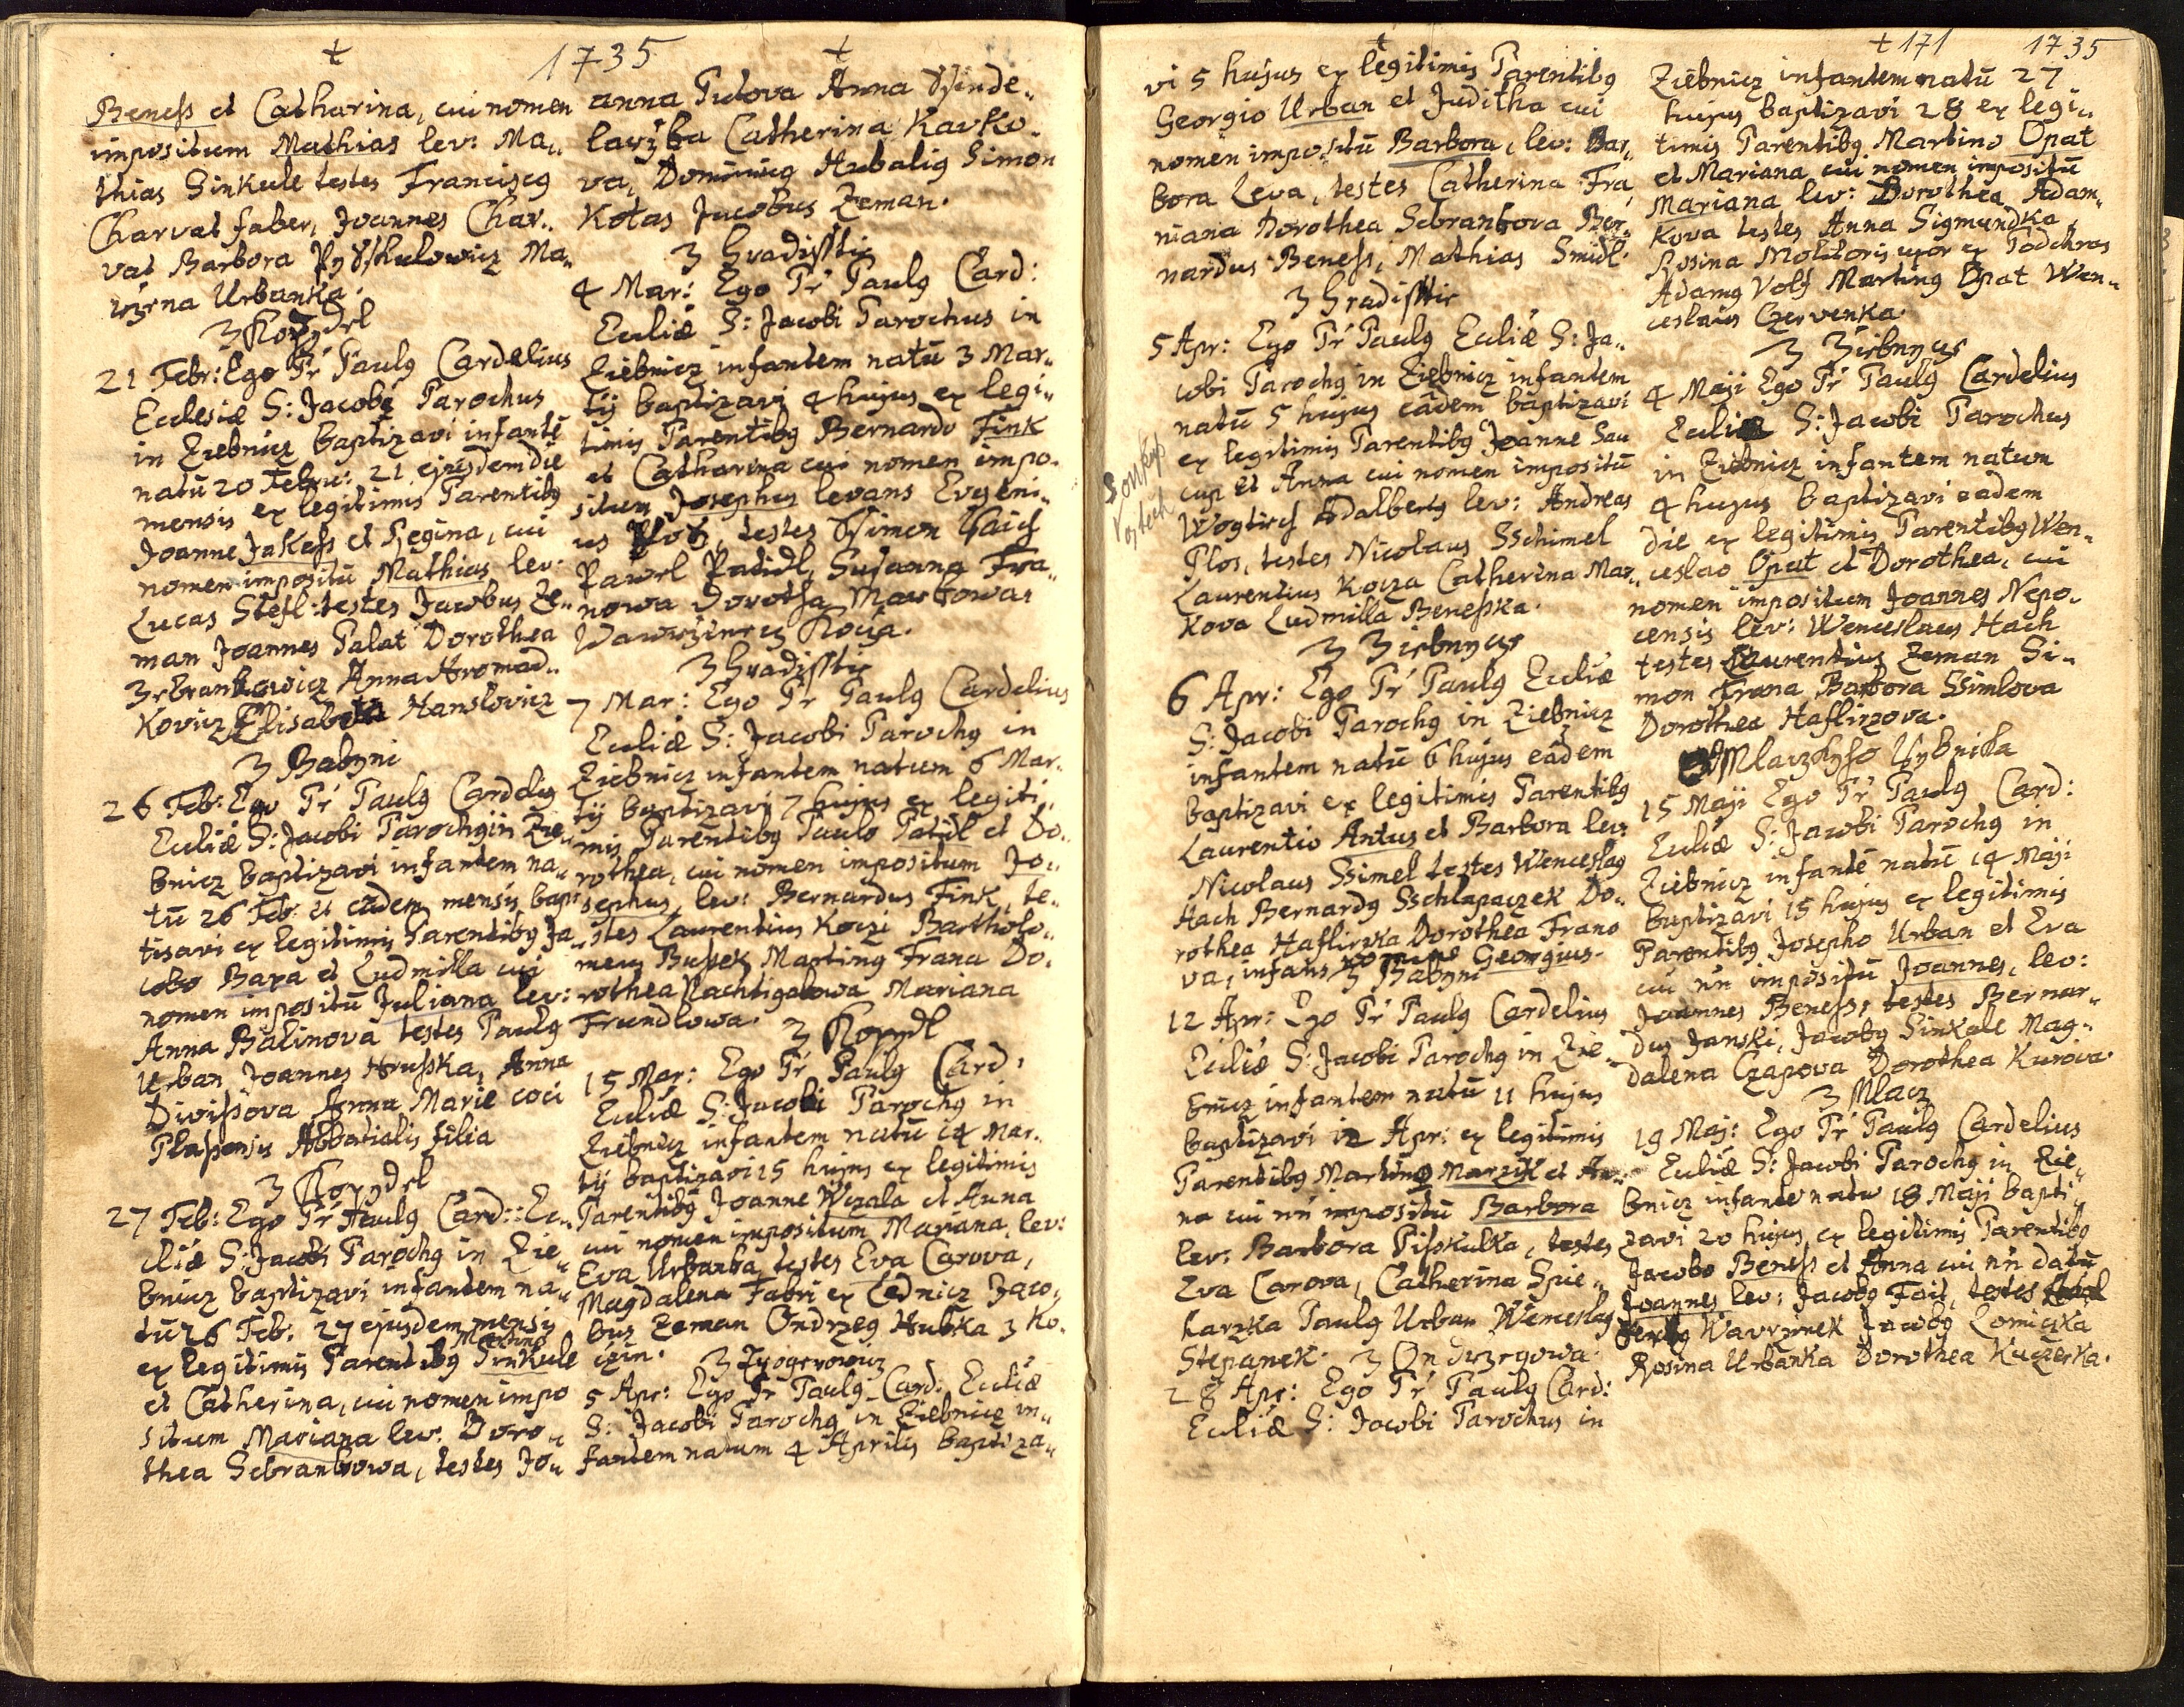 1735
Beneſs et Catharina, cui nomen
impositum Mathias lev: Ma„
thias Sinkule testes Franciscq
Charvat faber, Joannes Char„
vat Barbora Ma„
Urbanka.
21 Febr: Ego Pr Paulq Cardelius
Ecclesiæ S: Jacobi Parochus
in Ziebnicz baptizavi infantē
natū 20 Febru: 21 ejusdem die
mensis ex legitimis Parentibq
Joanne Jakeſs et Regina, cui
nomen impositū Mathias lev:
Lucas Stefl: testes Jacobus Ze„
man Joannes Palat Dorothea
Anna Hromad„
kovicz Elisabeta Hanslovicz
z Babyni
26 Feb: Ego Pr Paulq Cardeliq
Ecliæ S: Jacobi Parochq in Zie„
bnicz baptizavi infantem na„
tū 26 Feb: et eadem mensis bap„
tisavi ex legitimis Parentibq Ja
cobo Baxa et Ludmilla cui
nomen impositū Juliana lev:
Anna Balinova testes Paulq
Urban Joannes Hruſska, Anna
Diviſsova Anna Marie coci
Plaſsensis Abbatialis filia
27 Feb: Ego Pr Paulq Card: Ec„
cliæ S: Jacobi Parochq in Zie„
bnicz baptizavi infantem na„
tū 26 Feb: 27 ejusdem mensis
Martino
ex legitimis Parentibq Sinkule
et Catherina, cui nomen impo
situm Mariana lev: Doro„
thea Sebrantowa, testes Jo„
anna Anna
Catherina Karko„
va, Dominicq Hubaliq Simon
Kotas Jacobus Zeman.
z Hradisstie
4 Mar: Ego Pr Paulq Card:
Ecliæ S: Jacobi Parochus in
Ziebnicz infantem natū 3 Mar„
tij baptizavi 4 hujus ex legi„
timis Parentibq Bernardo Fink
et Catharina cui nomen impo„
situm Josephus levans Eugeni„
us testes Simon
Pawel Susanna Fra„
nowa Dorotha
z Hradisstie
7 Mar: Ego Pr Paulq Cardelius
Ecliæ S: Jacobi Parochq in
Ziebnicz infantem natum 6 Mar„
tij baptizavi 7 hujus ex legiti„
mis Parentibq Paulo Patidl et Do„
rothea, cui nomen impositum Jo„
sephus, lev: Bernardus Fink, te„
stes Laurentius Koczi Bartholo„
meus Buſsek Martinq Frana Do„
rothea Nachtigalowa Mariana
Frundlowa.
15 Mar: Ego Pr Paulq Card:
Ecliæ S: Jacobi Parochq in
Ziebnicz infantem natū 14 Mar„
tij baptizavi 15 hujus ex legitimis
Parentibq Joanne Wczala et Anna
cui nomen impositum Mariana, lev:
Eva Urbanka testes Eva Carova,
Magdalena Fabri ex Lednicz Jaco„
bus Zeman Ondrzeg Hubka z Ko„
5 Apr: Ego Pr Paulq Card: Ecliæ
S: Jacobi Parochq in Ziebnicz in„
fantem natum 4 Aprilis baptiza„
171 1735
vi 5 hujus ex legitimis Parentibq
Georgio Urban et Juditha cui
nomen impositū Barbora, lev: Bar„
bora Leva, testes Catherina Fra
niana Dorothea Sebrantova Ber„
nardus Beneſs, Mathias Smidl.
z Hradisstie
5 Apr: Ego Pr Paulq Ecliæ S: Ja„
cobi Parochq in Ziebnicz infantem
natū 5 hujus eadem baptizavi
ex legitimis Parentibq Joanne Sau
cup et Anna cui nomen impositū
Soukup
Vojtech
Wogtiech Adalbertq lev: Andreas
Plos, testes Nicolaus Sschimel
Laurentius Kocza Catherina Mar„
kova Ludmilla Beneſska.
z Ziebnycze
6 Apr: Ego Pr Paulq Ecliæ
S: Jacobi Parochq in Ziebnicz
infantem natū 6 hujus eadem
baptizavi ex legitimis Parentibq
Laurentio Antus et Barbora lev:
Nicolaus Ssimel testes Wenceslaq
Hach Bernardq Sschlapaczek Do„
rothea Haflirzka Dorothea Frano
va, infans nomine Georgius.
z Babyni
12 Apr: Ego Pr Paulq Cardelius
Ecliæ S: Jacobi Parochq in Zie„
bnicz infantem natū 11 hujus
baptizavi 12 Apr: ex legitimis
Parentibq Martino Marzik et An„
na cui nn impositū Barbora
lev: Barbora Piſskulka, testes
Eva Carova, Catherina Spie„
harzka Paulq Urban Wenceslaq
Stepanek. z Ondrzegowa.
28 Apr: Ego Pr Paulq Card:
Ecliæ S: Jacobi Parochus in
Ziebnicz infantem natū 27
hujus baptizavi 28 ex legi„
timis Parentibq Martino Opat
et Mariana cui nomen impositū
Mariana lev: Dorothea Adam„
kova testes Anna Sigmundka,
Rosina Molitoris uxor ex Podchras
Adamq Volf Martinq Opat Wen„
ceslaus Czervenka.
z Ziebnycze
4 Maji Ego Pr Paulq Cardelius
Ecliæ S: Jacobi Parochus
in Ziebnicz infantem natum
4 hujus baptizavi eadem
die ex legitimis Parentibq Wen„
ceslao Opat et Dorothea, cui
nomen impositum Joannes Nepo„
censis lev: Wenceslaus Hach
testes Laurentius Zeman Si„
mon Frana Barbora Ssimlova
Dorothea Haflirzova.
15 Maji Ego Pr Paulq Card:
Ecliæ S: Jacobi Parochq in
Ziebnicz infantē natū 14 Maji
baptizavi 15 hujus ex legitimis
Parentibq Josepho Urban et Eva
cui nn impositū Joannes, lev:
Joannes Beneſs, testes Bernar„
dus Janski, Jacobq Sinkule Mag„
dalena Czapova Dorothea Kurova.
z Mlacz
19 Maj: Ego Pr Paulq Cardelius
Ecliæ S: Jacobi Parochq in Zie„
bnicz infante natu 18 Maji bapti„
zavi 20 hujus ex legitimis Parentibq
Jacobo Beneſs et Anna cui nn datū
Joannes lev: Jacobq Fait, testes
Wavrzinek Jacobq Lomiczka
Rosina Urbanka Dorothea Kuczerka.